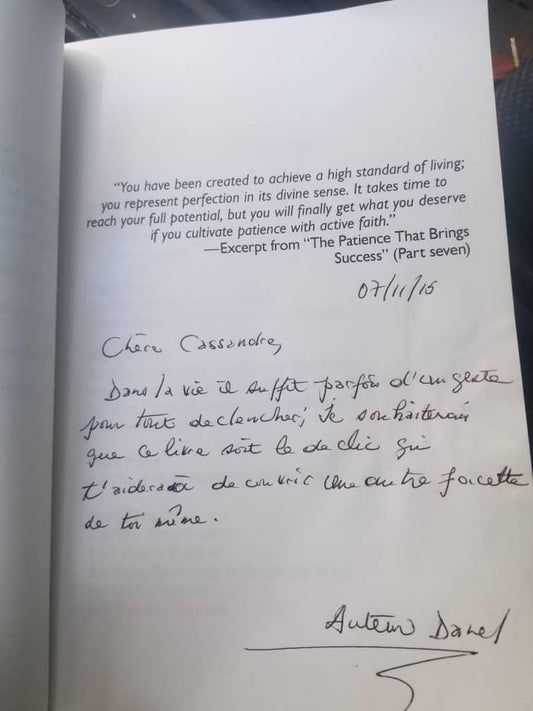 "You have been created to achieve a high standard of living;
you represent perfection in its divine sense. It takes time to
reach your full potential, but you will finally get what you deserve
if you cultivate patience with active faith."
—Excerpt from "The Patience That Brings
Success" (Part seven)
07/11/15
Chère Cassandre,
Dans la vie il suffit parfois d'un geste
pour tout declencher; Je souhaiterais
que ce livre soit le declic qui
t'aidera à decouvrir une autre facette
de toi même.